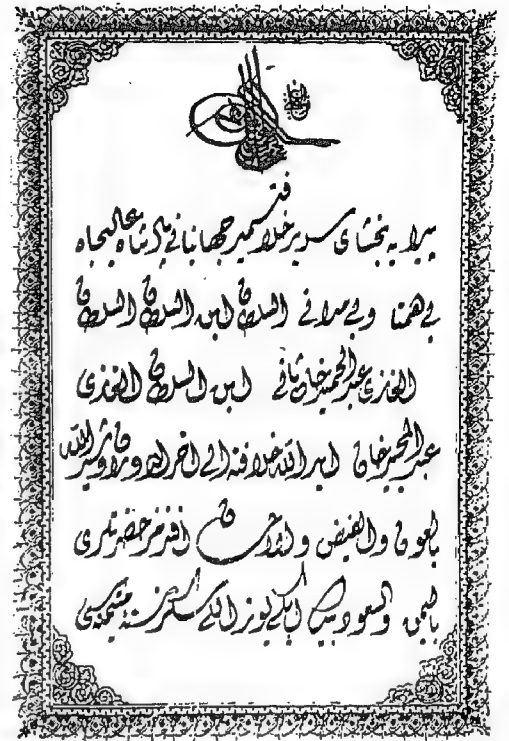 پیرایه بخشای سریر خلافتسمیر جهانبانی پادشاه عالیجاه
بی همتا و بی مدانی السلطان ابن السلطان السلطان
الغازی عبد الحمید خان ثانی ابن السلطان الغازی
عبد المجید خان اید الله خلافته الی اخر الدوران الله
بالعون والفیض والاحسان افندمز حضرتلری
بالیمن والسعود بیك ایکیوز اللی سکز سنه